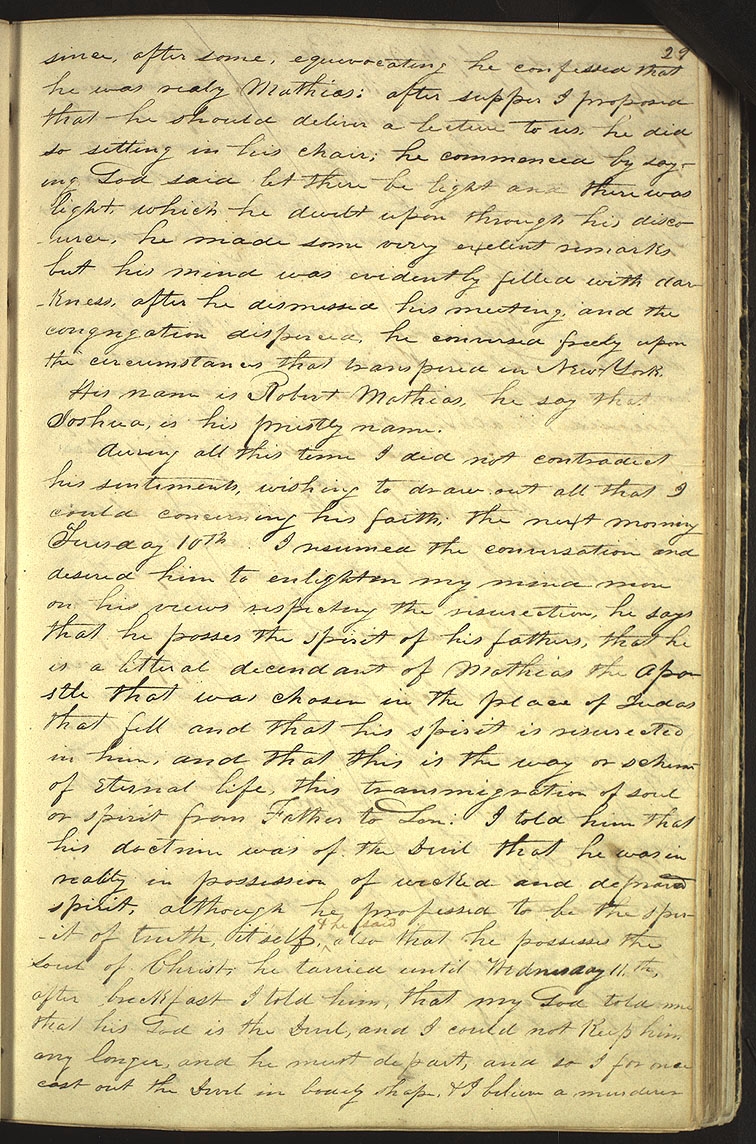 29
since, after some, equevocating he confessed that
he was realy Mathias: after supper I proposed
that he should deliver a lecture to us, he did
so setting in his chair; he commenced by say-
ing God said let there be light and there was
light, which he dwelt upon through his disco-
-urse, he made some very exelent remarks
but his mind was evidently filled with dar-
-kness, after he dismissed his meeting, and the
congregation disperced, he conversed freely upon
the circumstances that transpired in New York.
His name is Robert Mathias, he say that
Joshua, is his priestly name.
during all this time I did not contradict
his sentiments, wishing to draw out all that I
could concerning his faith; the next morning
Tuesday 10th. I resumed the conversation and
desired him to enlighten my mind more
on his views respecting the resurection, he says
that he posses the spirit of his fathers, that he
is a litteral decendant of Mathias the Apo-
stle that was chosen in the place of Judas
that fell and that his spirit is resurected
in him, and that this is the way or scheme
of eternal life, this transmigration of soul
or spirit from Father to Son: I told him that
his doctrine was of the Devil that he was in
reality in possession of wicked and depraved
spirit, although he professed to be the spir-
-it of truth, itself, & he said also that he possesses the
soul of Christ; he tarried until Wednesday 11.th,
after breckfast I told him, that my God told me
that his God is the Devil, and I could not keep him
any longer, and he must depart, and so I for once
cast out the Devil in bodily shape, & I believe a murderer